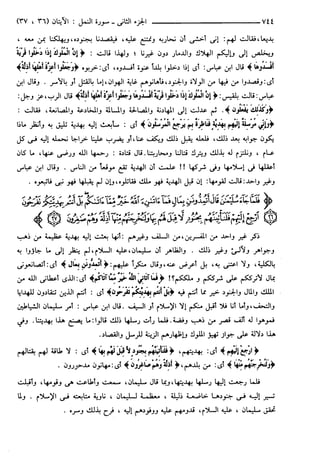 ٧٤٤ ــــــــــ الجزء الثانى ـ سورة النمل : الآيتان (٣٦ ، ٣٧)
بديعا، فقالت لهم: إنى أخشى أن نحاربه ونمتنع عليه، فيقصدنا بجنوده، ويهلكنا بمن معه ،
ويخلص إلى وإليكم الهلاك والدمار دون غيرنا ؛ ولهذا قالت : ﴿ إِنَّ الْمُلُوكَ إِذَا دَخَلُوا قَرْيَةً
أَفْسَدُوهَا ﴾ قال ابن عباس: أى إذا دخلوا بلداً عنوة أفسدوه، أى: خربوه، ﴿ وَجَعَلُوا أَعِزَّةَ أَهْلِهَا أَذِلَّةً ﴾
أى: وقصدوا من فيها من الولاة والجنود، فأهانوهم غاية الهوان، إما بالقتل أو بالأسر . وقال ابن
عباس: قالت بلقيس: ﴿ إِنَّ الْمُلُوكَ إِذَا دَخَلُوا قَرْيَةً أَفْسَدُوهَا وَجَعَلُوا أَعِزَّةَ أَهْلِهَا أَذِلَّةً ﴾ قال الرب، عز وجل:
﴿ وَكَذَٰلِكَ يَفْعَلُونَ ﴾ . ثم عدلت إلى المهادنة والمصالحة والمسالمة والمخادعة والمصانعة، فقالت :
﴿ وَإِنِّي مُرْسِلَةٌ إِلَيْهِم بِهَدِيَّةٍ فَنَاظِرَةٌ بِمَ يَرْجِعُ الْمُرْسَلُونَ ﴾ أى : سأبعث إليه بهدية تليق به وأنظر ماذا
يكون جوابه بعد ذلك، فلعله يقبل ذلك ويكف عنا، أو يضرب علينا خراجا نحمله إليه فى كل
عام ، ونلتزم له بذلك ويترك قتالنا ومحاربتنا. قال قتادة : رحمها الله ورضى عنها، ما كان
أعقلها فى إسلامها وفى شركها !! علمت أن الهدية تقع موقعاً من الناس . وقال ابن عباس
وغير واحد: قالت لقومها: إن قبل الهدية فهو ملك فقاتلوه، وإن لم يقبلها فهو نبى فاتبعوه .
﴿ فَلَمَّا جَاءَ سُلَيْمَانَ قَالَ أَتُمِدُّونَنِ بِمَالٍ فَمَا آتَانِيَ اللَّهُ خَيْرٌ مِّمَّا آتَاكُم بَلْ أَنتُم بِهَدِيَّتِكُمْ تَفْرَحُونَ
﴿٣٦﴾ ارْجِعْ إِلَيْهِمْ فَلَنَأْتِيَنَّهُم بِجُنُودٍ لَّا قِبَلَ لَهُم بِهَا وَلَنُخْرِجَنَّهُم مِّنْهَا أَذِلَّةً وَهُمْ صَاغِرُونَ ﴿٣٧﴾ ﴾
ذكر غير واحد من المفسرين، من السلف وغيرهم : أنها بعثت إليه بهدية عظيمة من ذهب
وجواهر ولآلئ وغير ذلك . والظاهر أن سليمان، عليه السلام، لم ينظر إلى ما جاؤوا به
بالكلية، ولا اعتنى به، بل أعرض عنه، وقال منكراً عليهم: ﴿ أَتُمِدُّونَنِ بِمَالٍ ﴾ أى: أتصانعونى
بمال لأترككم على شرككم وملككم؟! ﴿ فَمَا آتَانِيَ اللَّهُ خَيْرٌ مِّمَّا آتَاكُم ﴾ أى: الذى أعطانى الله من
الملك والمال والجنود خير مما أنتم فيه ﴿ بَلْ أَنتُم بِهَدِيَّتِكُمْ تَفْرَحُونَ ﴾ أى : أنتم الذين تنقادون للهدايا
والتحف، وأما أنا فلا أقبل منكم إلا الإسلام أو السيف. قال ابن عباس : أمر سليمان الشياطين
فموهوا له ألف قصر من ذهب وفضة. فلما رأت رسلها ذلك قالوا: ما يصنع هذا بهديتنا. وفى
هذا دلالة على جواز تهيؤ الملوك وإظهارهم الزينة للرسل والقصاد.
﴿ ارْجِعْ إِلَيْهِمْ ﴾ أى: بهديتهم، ﴿ فَلَنَأْتِيَنَّهُم بِجُنُودٍ لَّا قِبَلَ لَهُم بِهَا ﴾ أى : لا طاقة لهم بقتالهم
﴿ وَلَنُخْرِجَنَّهُم مِّنْهَا ﴾ أى: من بلدهم، ﴿ أَذِلَّةً وَهُمْ صَاغِرُونَ ﴾ أى: مهانون مدحورون .
فلما رجعت إليها رسلها بهديتها، وبما قال سليمان، سمعت وأطاعت هى وقومها، وأقبلت
تسير إليه فى جنودها خاضعة ذليلة ، معظمة لسليمان ، ناوية متابعته فى الإسلام . ولما
تحقق سليمان ، عليه السلام، قدومهم عليه ووفودهم إليه ، فرح بذلك وسره .